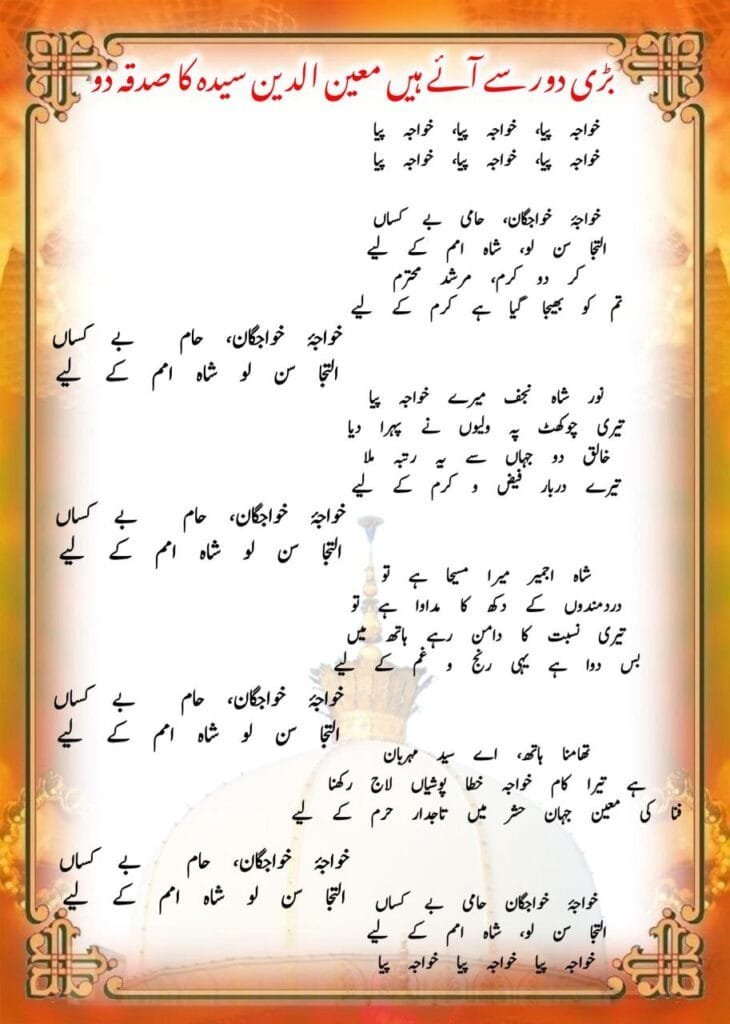 بڑی دور سے آئے ہیں معین الدین سیدہ کا صدقہ دو
خواجہ پیا، خواجہ پیا، خواجہ پیا
خواجہ پیا، خواجہ پیا، خواجہ پیا
خواجۂ خواجگان، حامی بے کساں
التجا سن لو، شاہ امم کے لیے
کر دو کرم، مرشد محترم
تم کو بھیجا گیا ہے کرم کے لیے
خواجۂ خواجگان، حام بے کساں
التجا سن لو شاہ امم کے لیے
نور شاہ نجف میرے خواجہ پیا
تیری چوکھٹ پہ ولیوں نے پہرا دیا
خالق دو جہاں سے یہ رتبہ ملا
تیرے دربار فیض و کرم کے لیے
خواجۂ خواجگان، حام بے کساں
التجا سن لو شاہ امم کے لیے
شاہ اجمیر میرا مسیحا ہے تو
دردمندوں کے دکھ کا مداوا ہے تو
تیری نسبت کا دامن رہے ہاتھ میں
بس دوا ہے یہی رنج و غم کے لیے
خواجۂ خواجگان، حام بے کساں
التجا سن لو شاہ امم کے لیے
تھامنا ہاتھ، اے سید مہربان
ہے تیرا کام خواجہ خطا پوشیاں لاج رکھنا
فنا کی معین جہان حشر میں تاجدار حرم کے لیے
خواجۂ خواجگان، حام بے کساں
التجا سن لو شاہ امم کے لیے
خواجۂ خواجگان حامی بے کساں
التجا سن لو، شاہ امم کے لیے
خواجہ پیا خواجہ پیا خواجہ پیا